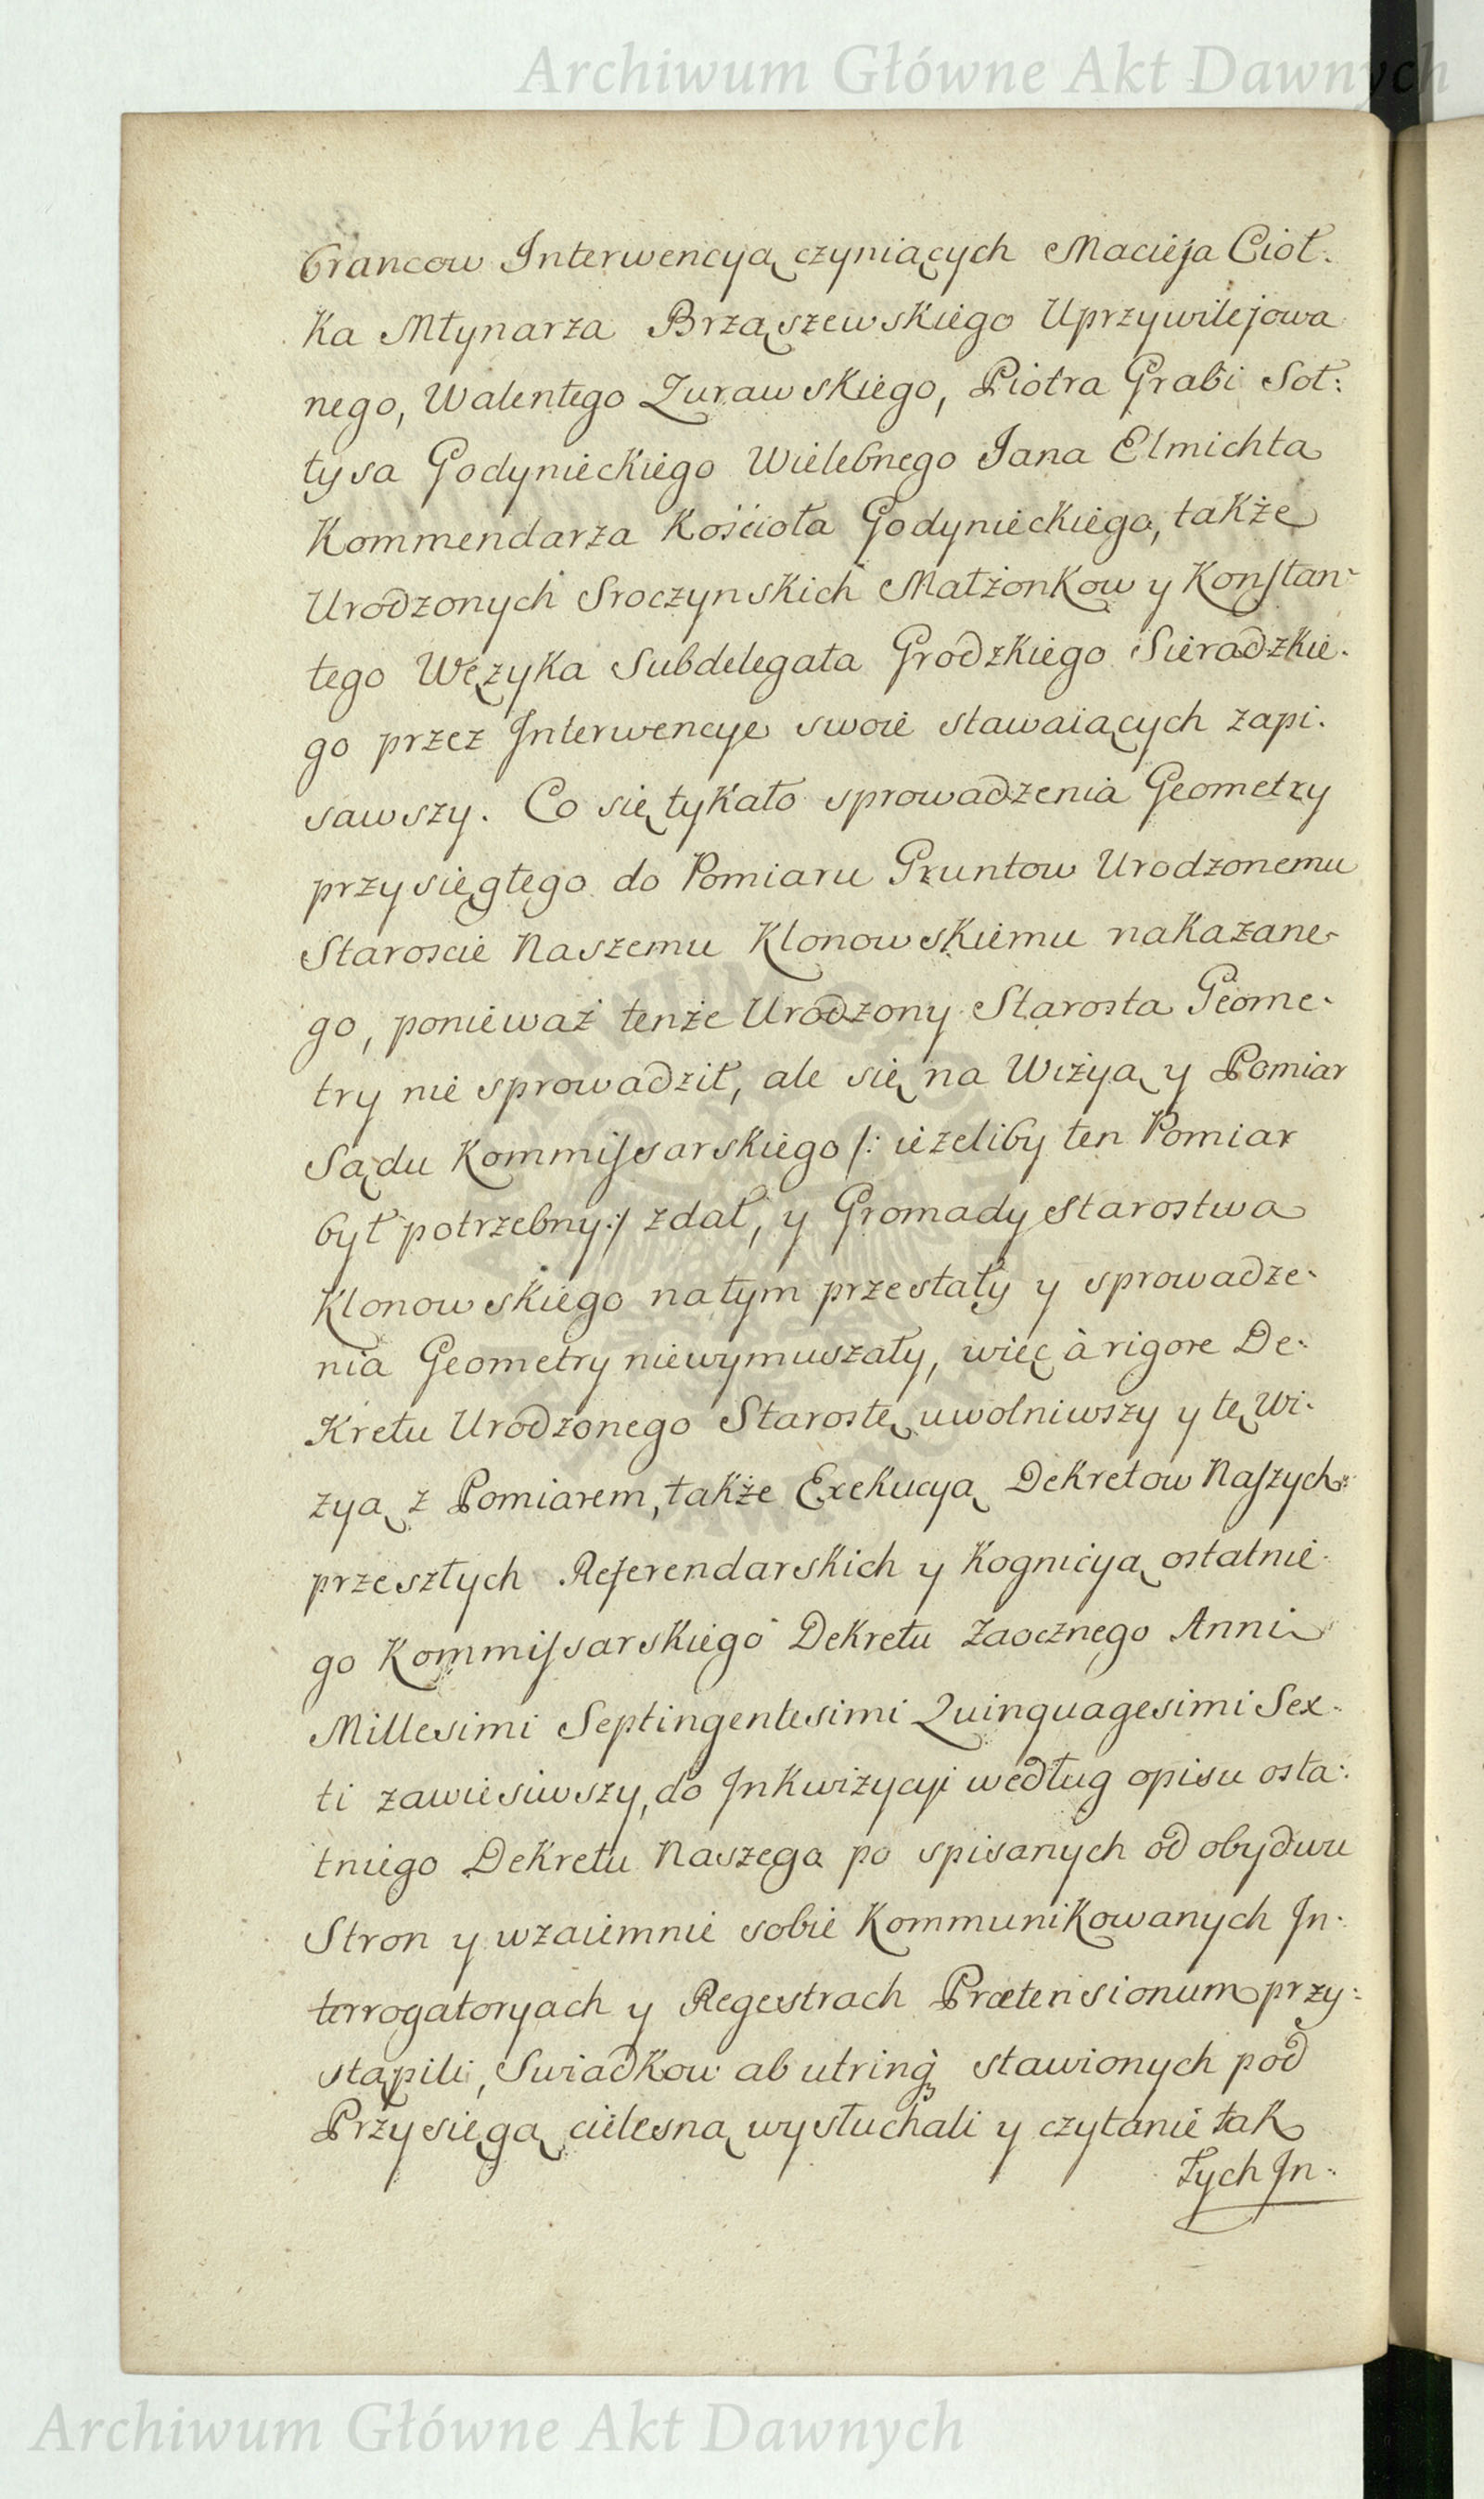 Archiwum Główne Akt Dawnych
brancow Interwencyą czyniących Macieja Cioł:
ka Młynarza Brząszewskiego Uprzywilejowa
nego, Walentego Zurawskiego, Piotra Grabi Soł:
tysa Godynieckiego Wielebnego Jana Elmichta
Kommendarza Kościoła Godynieckiego, także
Urodzonych Sroczynskich Małżonkow y Konstan-
tego Węzyka Subdelegata Grodzkiego Sieradzkie-
go przez Interwencye swoie stawaiących zapi-
sawszy. Co się tykało sprowadzenia Geometry
przysięgłego do Pomiaru Gruntow Urodzonemu
Staroscie Naszemu Klonowskiemu nakazane-
go, ponieważ tenże Urodzony Starosta Geome-
try nie sprowadził, ale się na Wizyą y Pomiar
Sądu Kommissarskiego /: ieżeliby ten Pomiar
był potrzebny :/ zdał, y Gromady Starostwa
Klonowskiego natym przestały y sprowadze-
nia Geometry niewymuszały, więc à rigore De-
kretu Urodzonego Starostę uwolniwszy y tę Wi-
zyą z Pomiarem, także Exekucyą Dekretow Naszych
przeszłych Referendarskich y Kognicyą ostatnie-
go Kommissarskiego Dekretu Zaocznego Anni
Millesimi Septingentesimi Quinquagesimi Sex-
ti zawiesiwszy, do Inkwizycyi według opisu osta-
tniego Dekretu Naszego po spisanych od obydwu
Stron y wzaiemnie sobie Kommunikowanych In-
terrogatoryach y Regestrach Prætensionum przy:
stąpili, Swiadkow ab utrinq3 stawionych pod
Przysięgą cielesną wysłuchali y czytanie tak
tych In-
Archiwum Główne Akt Dawnych